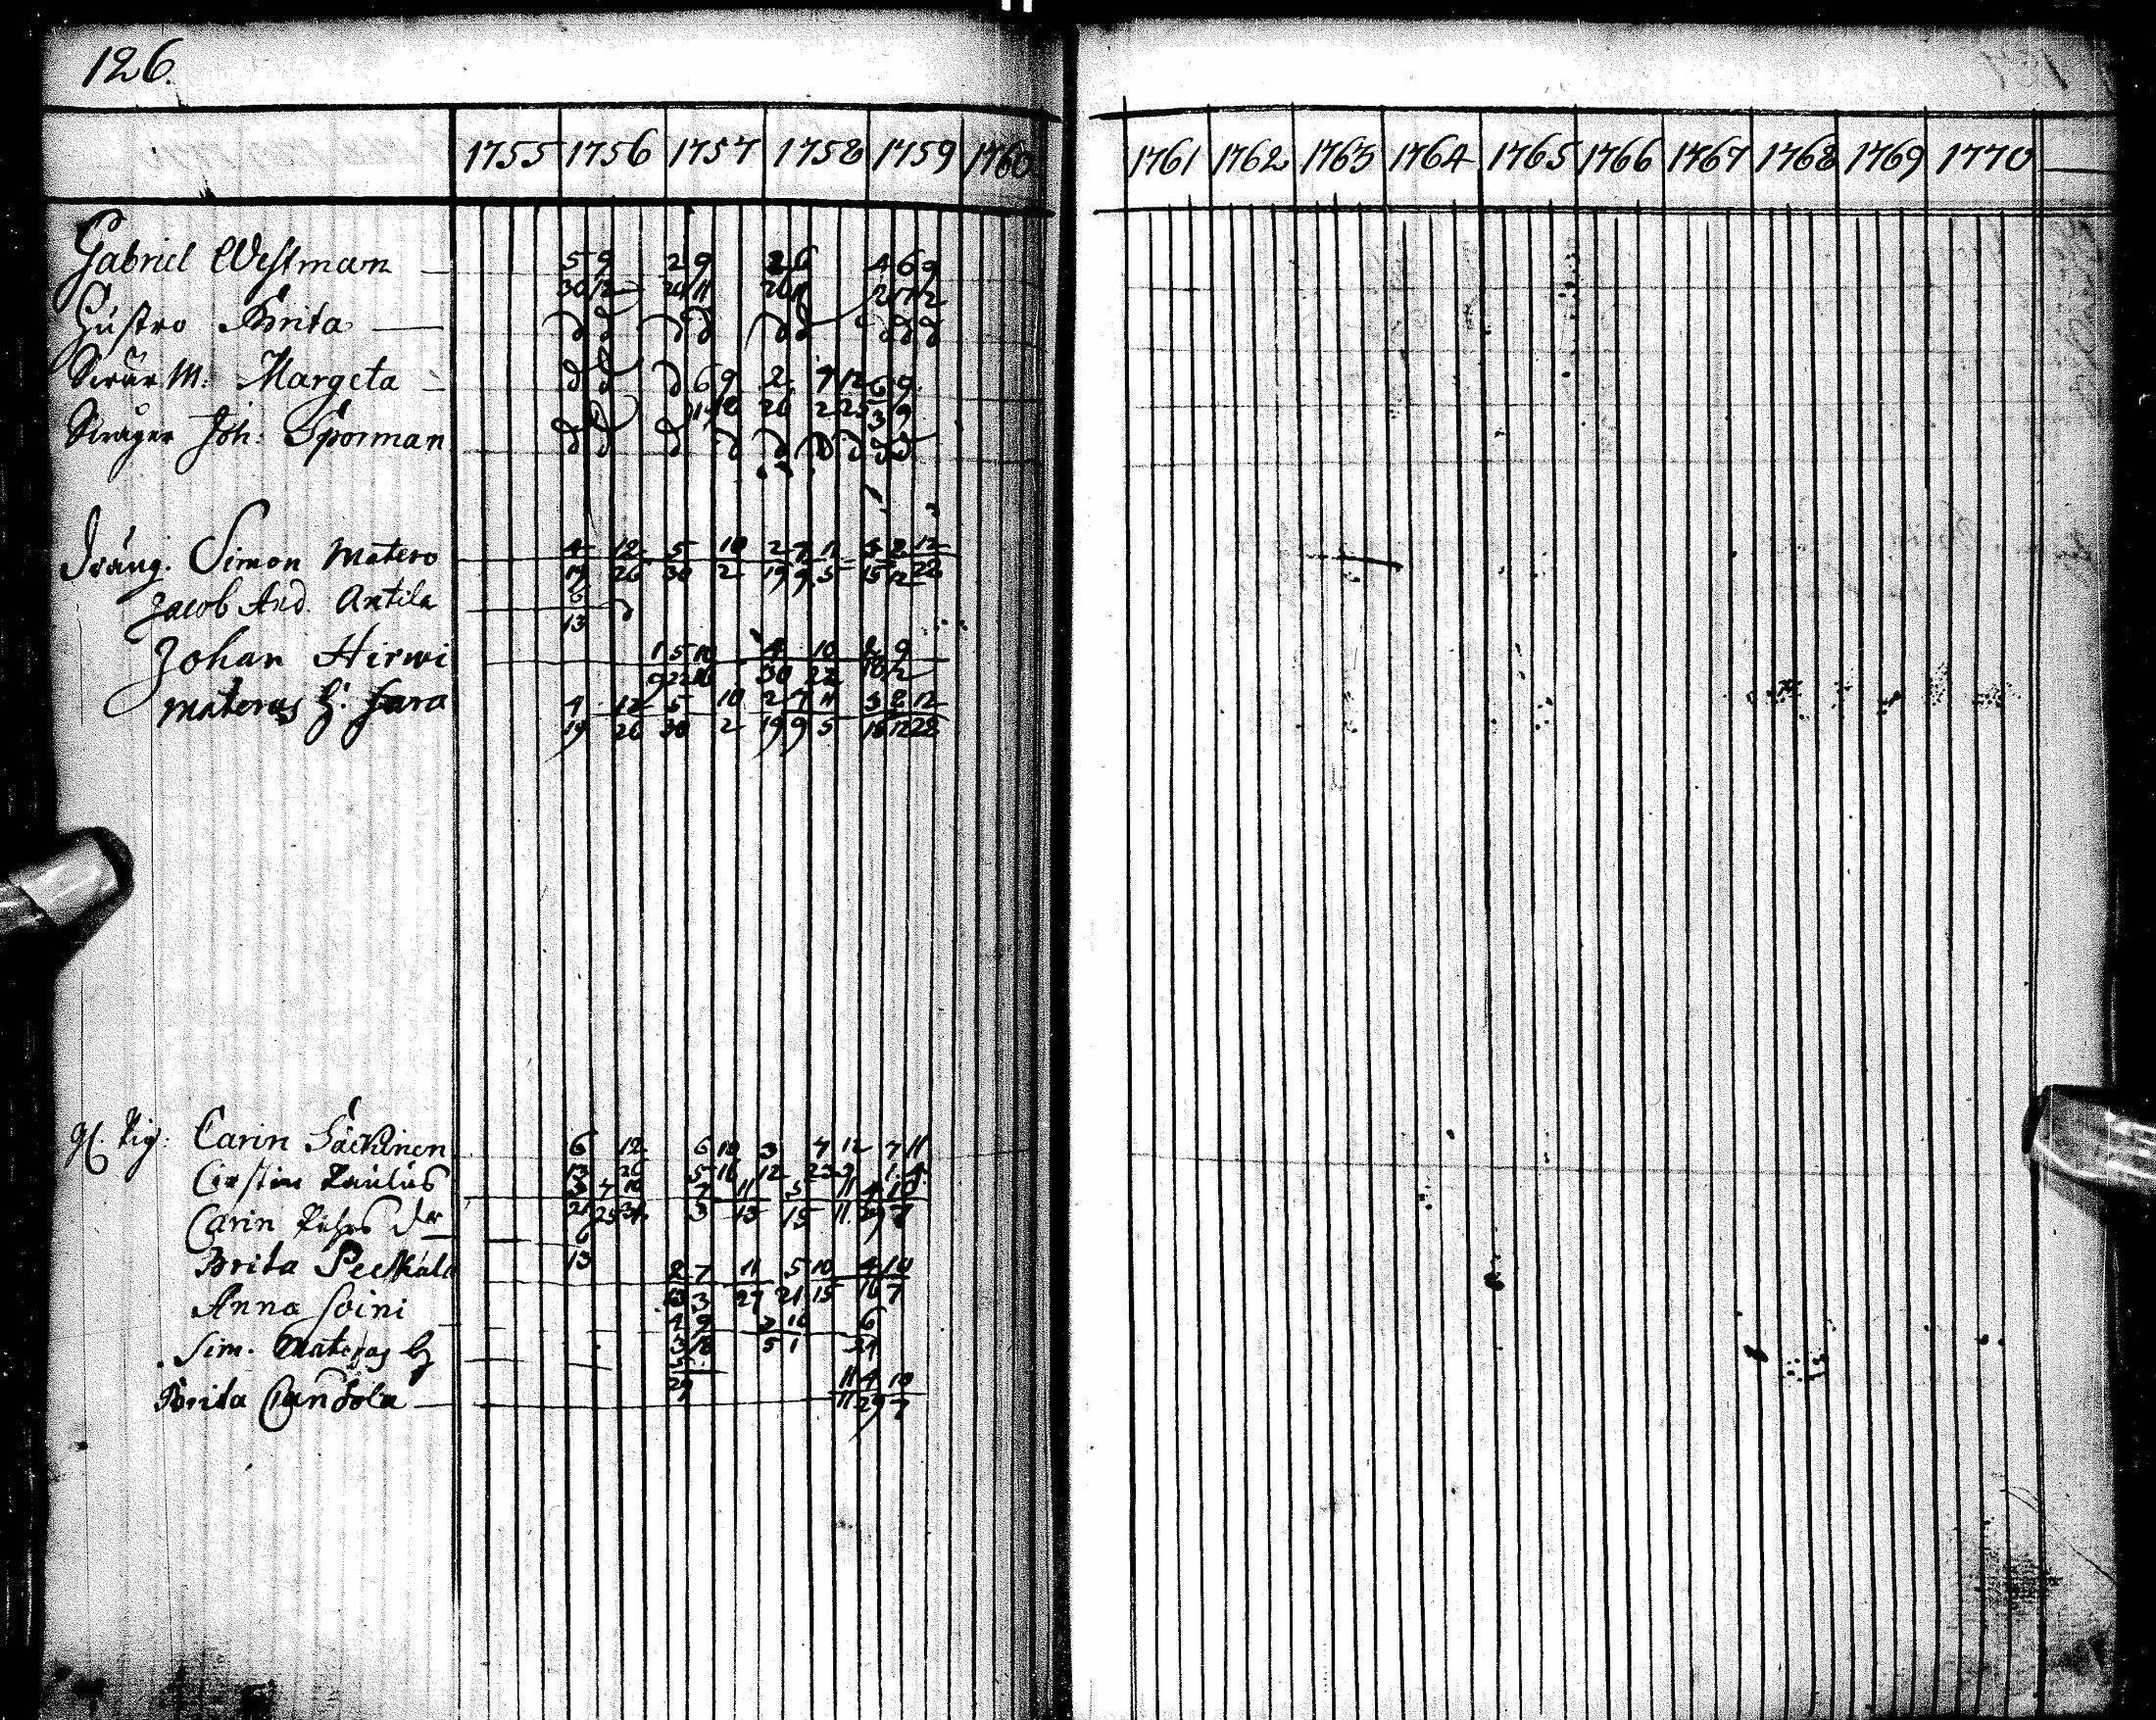 126.
1755 1756 1757 1758 1759 1760 1761 1762 1763 1764 1765 1766 1767 1768 1769 1770
Gabriel Westman 5 9 2 9 2 6 4 6 9
30 12 20 11 26 11 2 17 2
Hustro Brita d d d d d d d d d
Swär M: Margeta d d d 6 9 2 7 12 6 9
19 18 26 2 25 3 9
Swåger Joh: Sporman d d d d d d d d d
Dräng. Simon Matero 4 12 5 10 2 7 11 5 2 12
19 26 30 2 19 9 5 15 12 22
Jacob And. Antila 6
13
Johan Hirwi 1 5 10 4 10 9
9 22 16 30 22 2
Materus h: Sara 4 12 5 10 2 7 11 5 2 12
19 26 30 2 19 9 5 15 12 22
Pig: Carin Säckinen 6 12 6 10 3 7 12 7 11
13 26 5 16 12 23 9 1 4
Cirstin Paulus 3 7 10 7 11 5 11 4 10
21 25 31 3 13 15 11 29 7
Carin 6
13
Brita 2 7 11 5 10 4 10
13 3 27 21 15 16 7
Anna Soini 4 9 2 10 6
3 18 5 1 24
Sim. Materus h 5
29
Brita 11 4 10
11 29 7